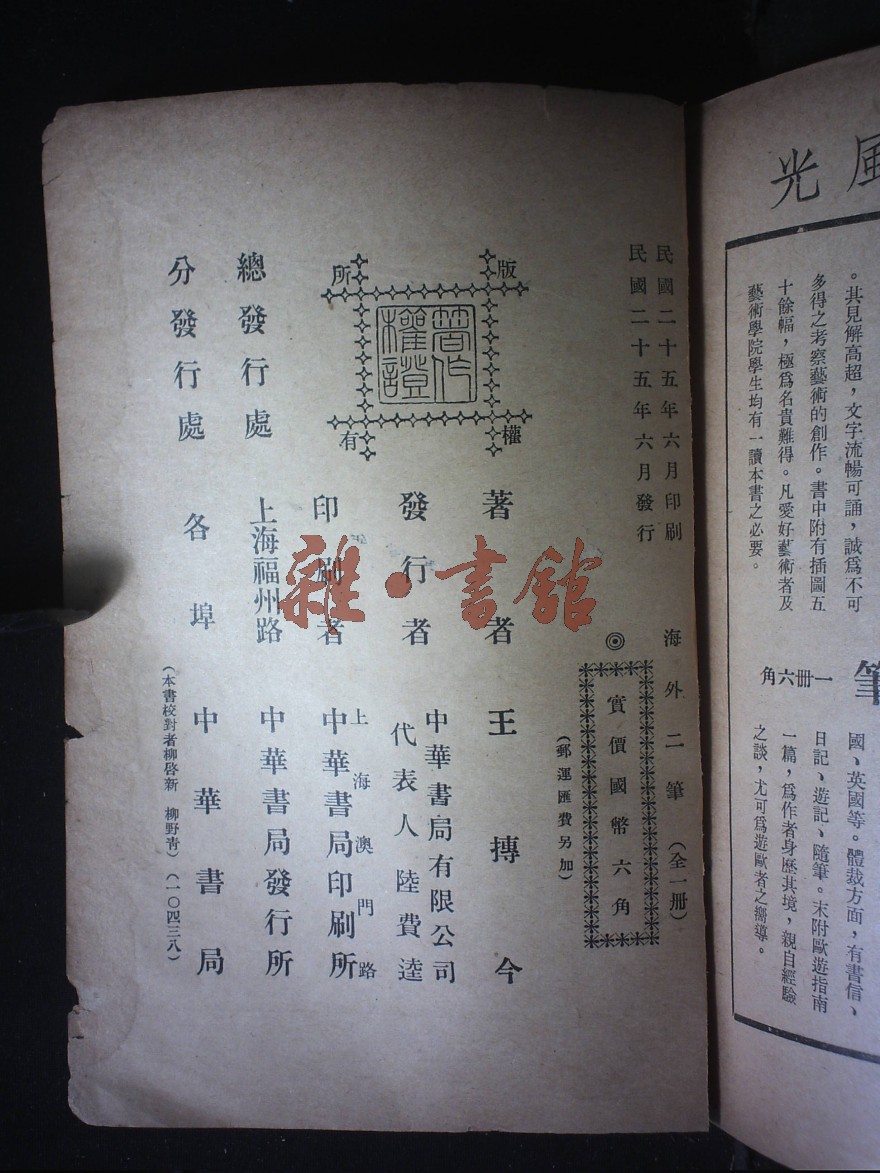 風
光
。其見解高超，文字流暢可誦，誠爲不可
多得之考察藝術的創作。書中附有插圖五
十餘幅，極爲名貴難得。凡愛好藝術者及
藝術學院學生均有一讀本書之必要。
筆
一册六角
國、英國等。體裁方面，有書信、
日記、遊記、隨筆。末附歐遊指南
一篇，爲作者身歷其境，親自經驗
之談，尤可爲遊歐者之嚮導。
民國二十五年六月印刷
民國二十五年六月發行
海外二筆（全一册）
◎
實價國幣六角
（郵運匯費另加）
版權所有
著作權證
著者 王摶今
發行者 中華書局有限公司
代表人 陸費逵
印刷者 上海澳門路
中華書局印刷所
總發行處 上海福州路 中華書局發行所
分發行處 各埠 中華書局
（本書校對者柳啓新 柳野青）（一〇四三八）
雜·書館